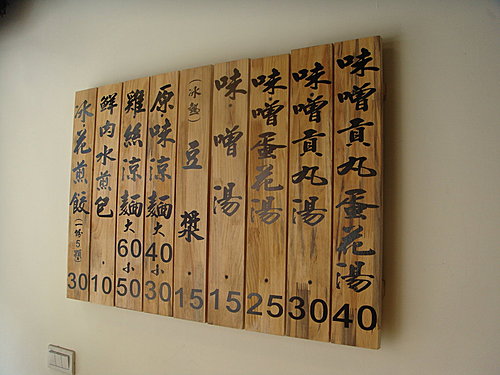 味噌貢丸蛋花湯 40
味噌貢丸湯 30
味噌蛋花湯 25
味噌湯 15
(冰・熱)豆漿 15
原味涼麵 大40 小30
雞絲涼麵 大60 小50
鮮肉水煎包 10
冰花煎餃(一份5顆) 30